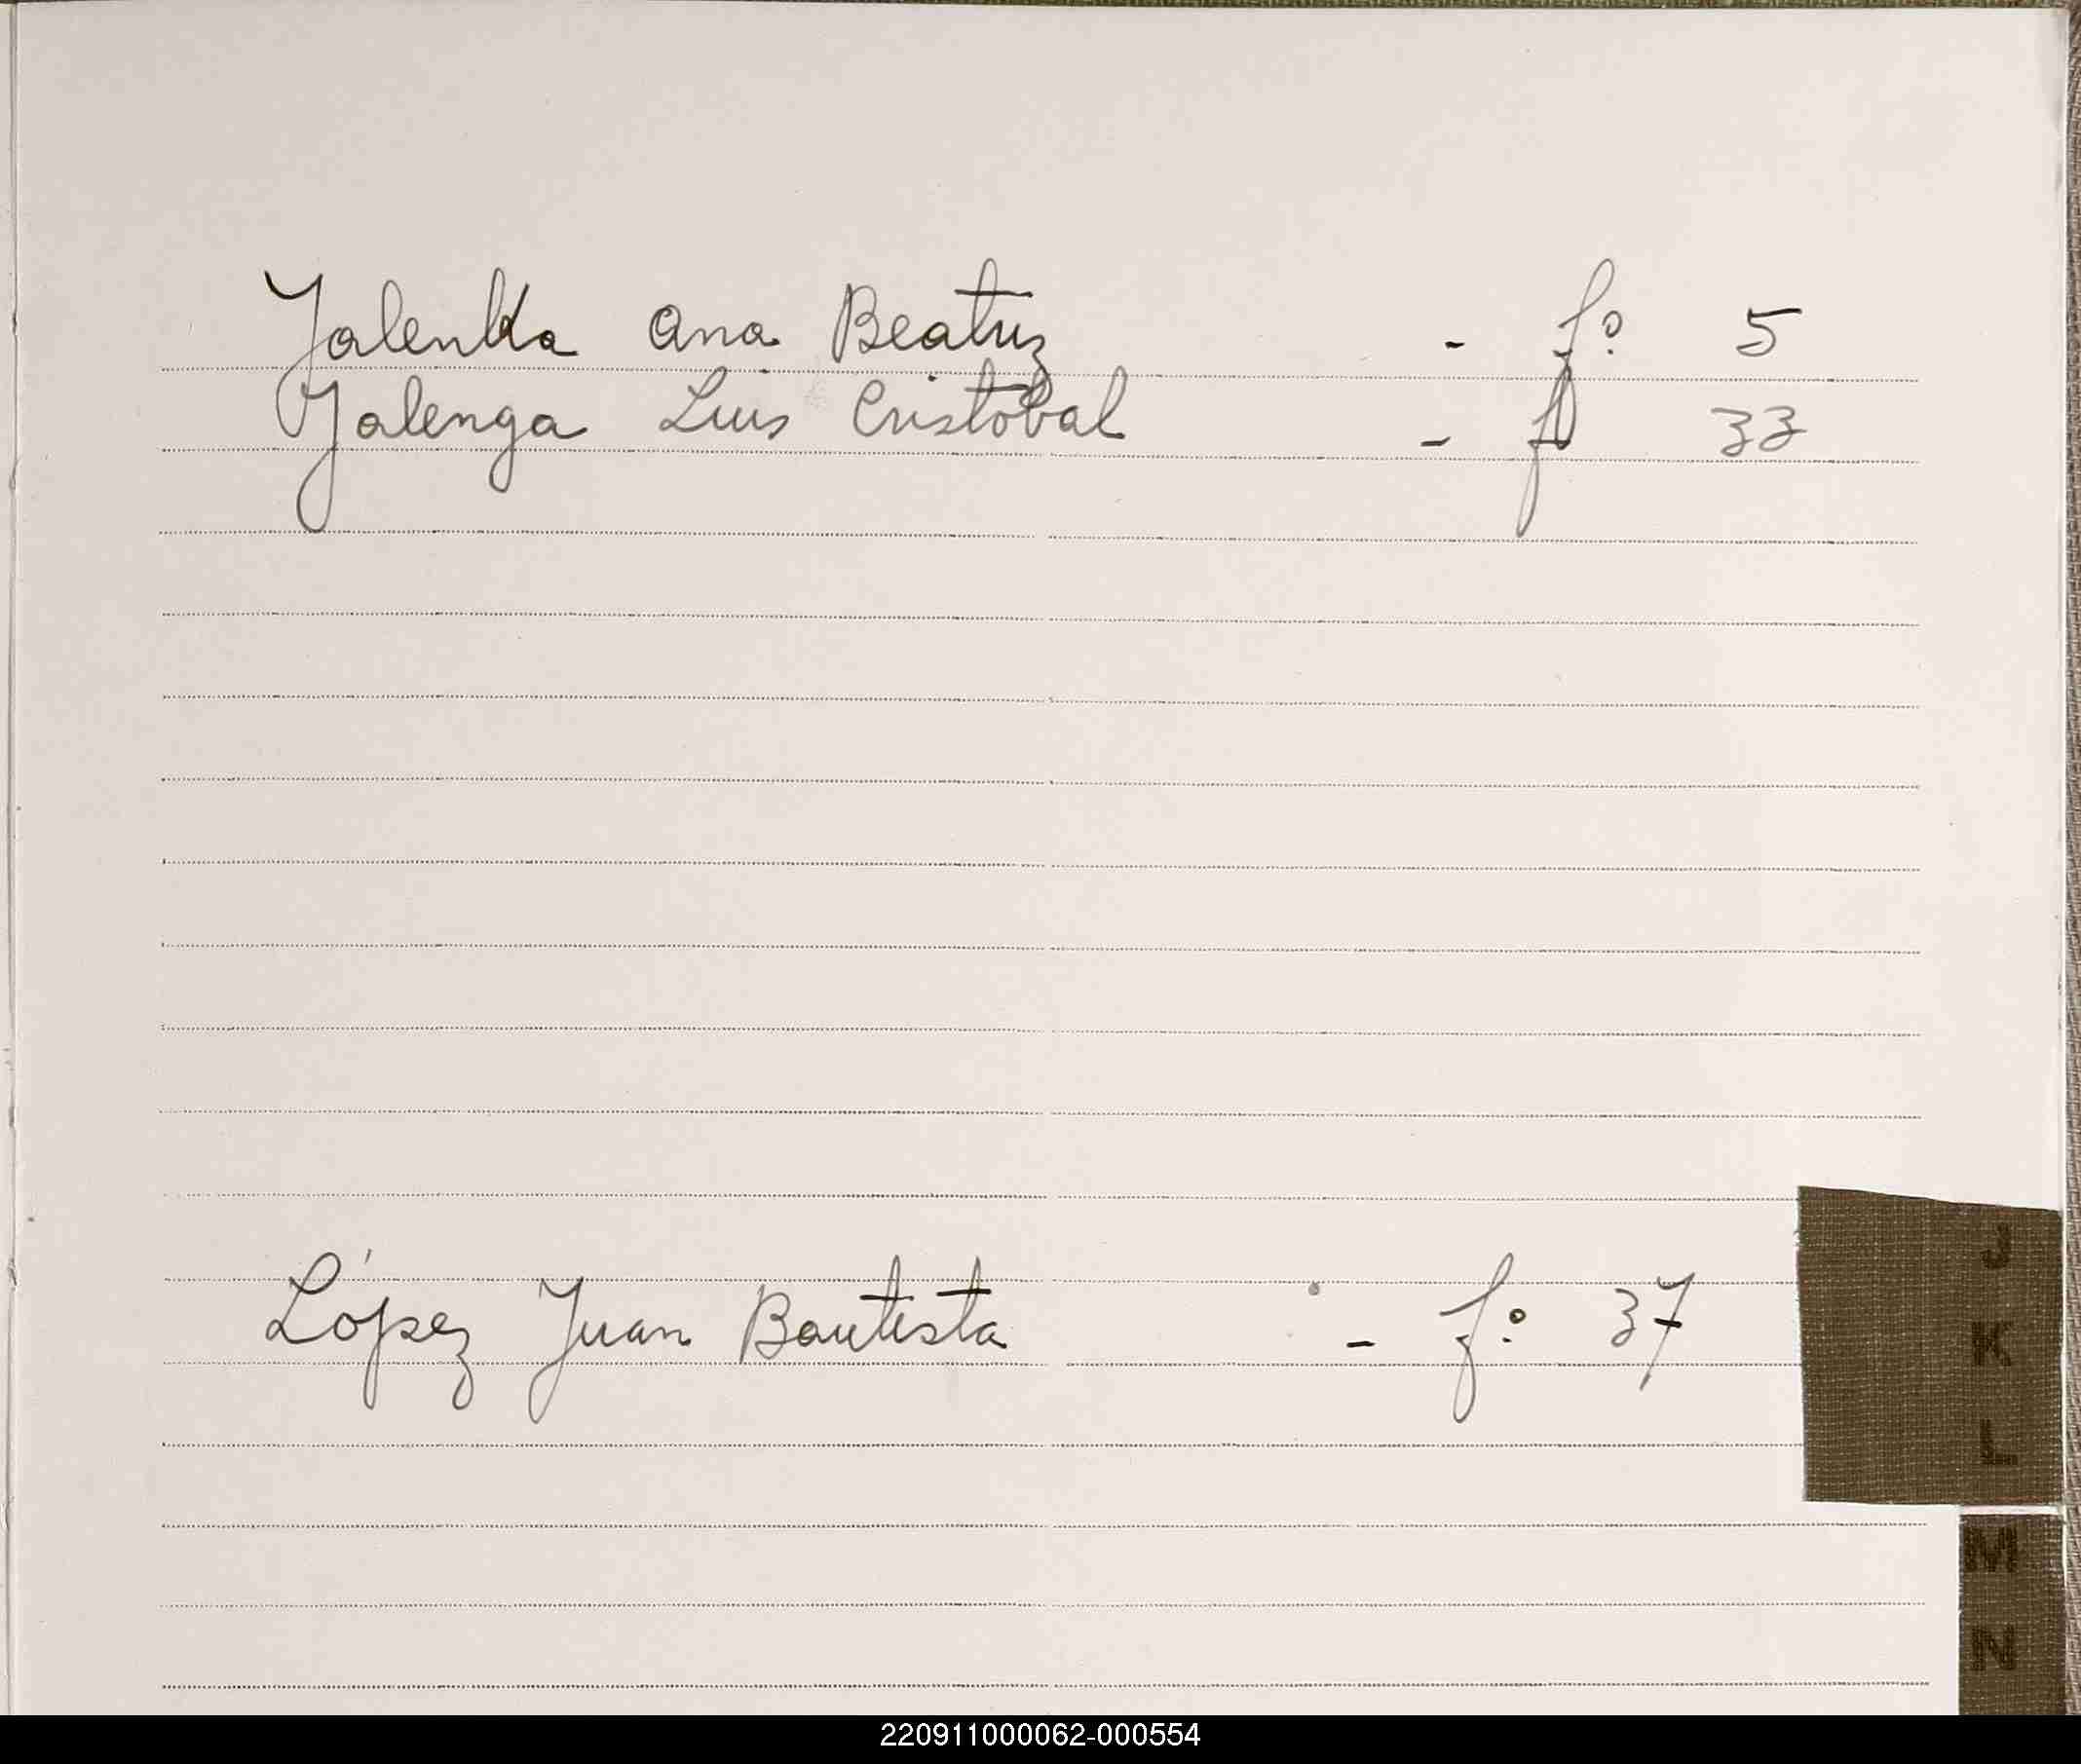 Jalenka Ana Beatriz - fº 5
Jalenga Luis Cristobal - fº 33
López Juan Bautista - fº 37
J
K
L
M
N
220911000062-000554